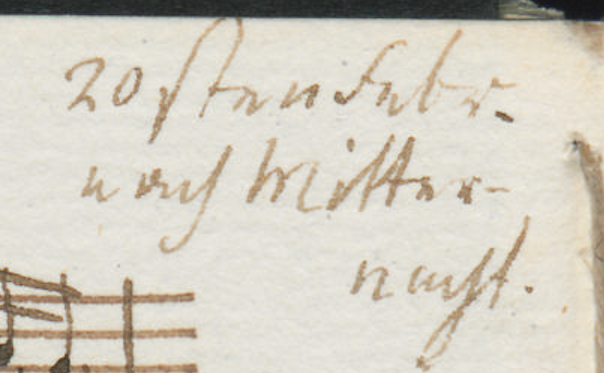 20sten Febr.
nach Mitter-
nacht.